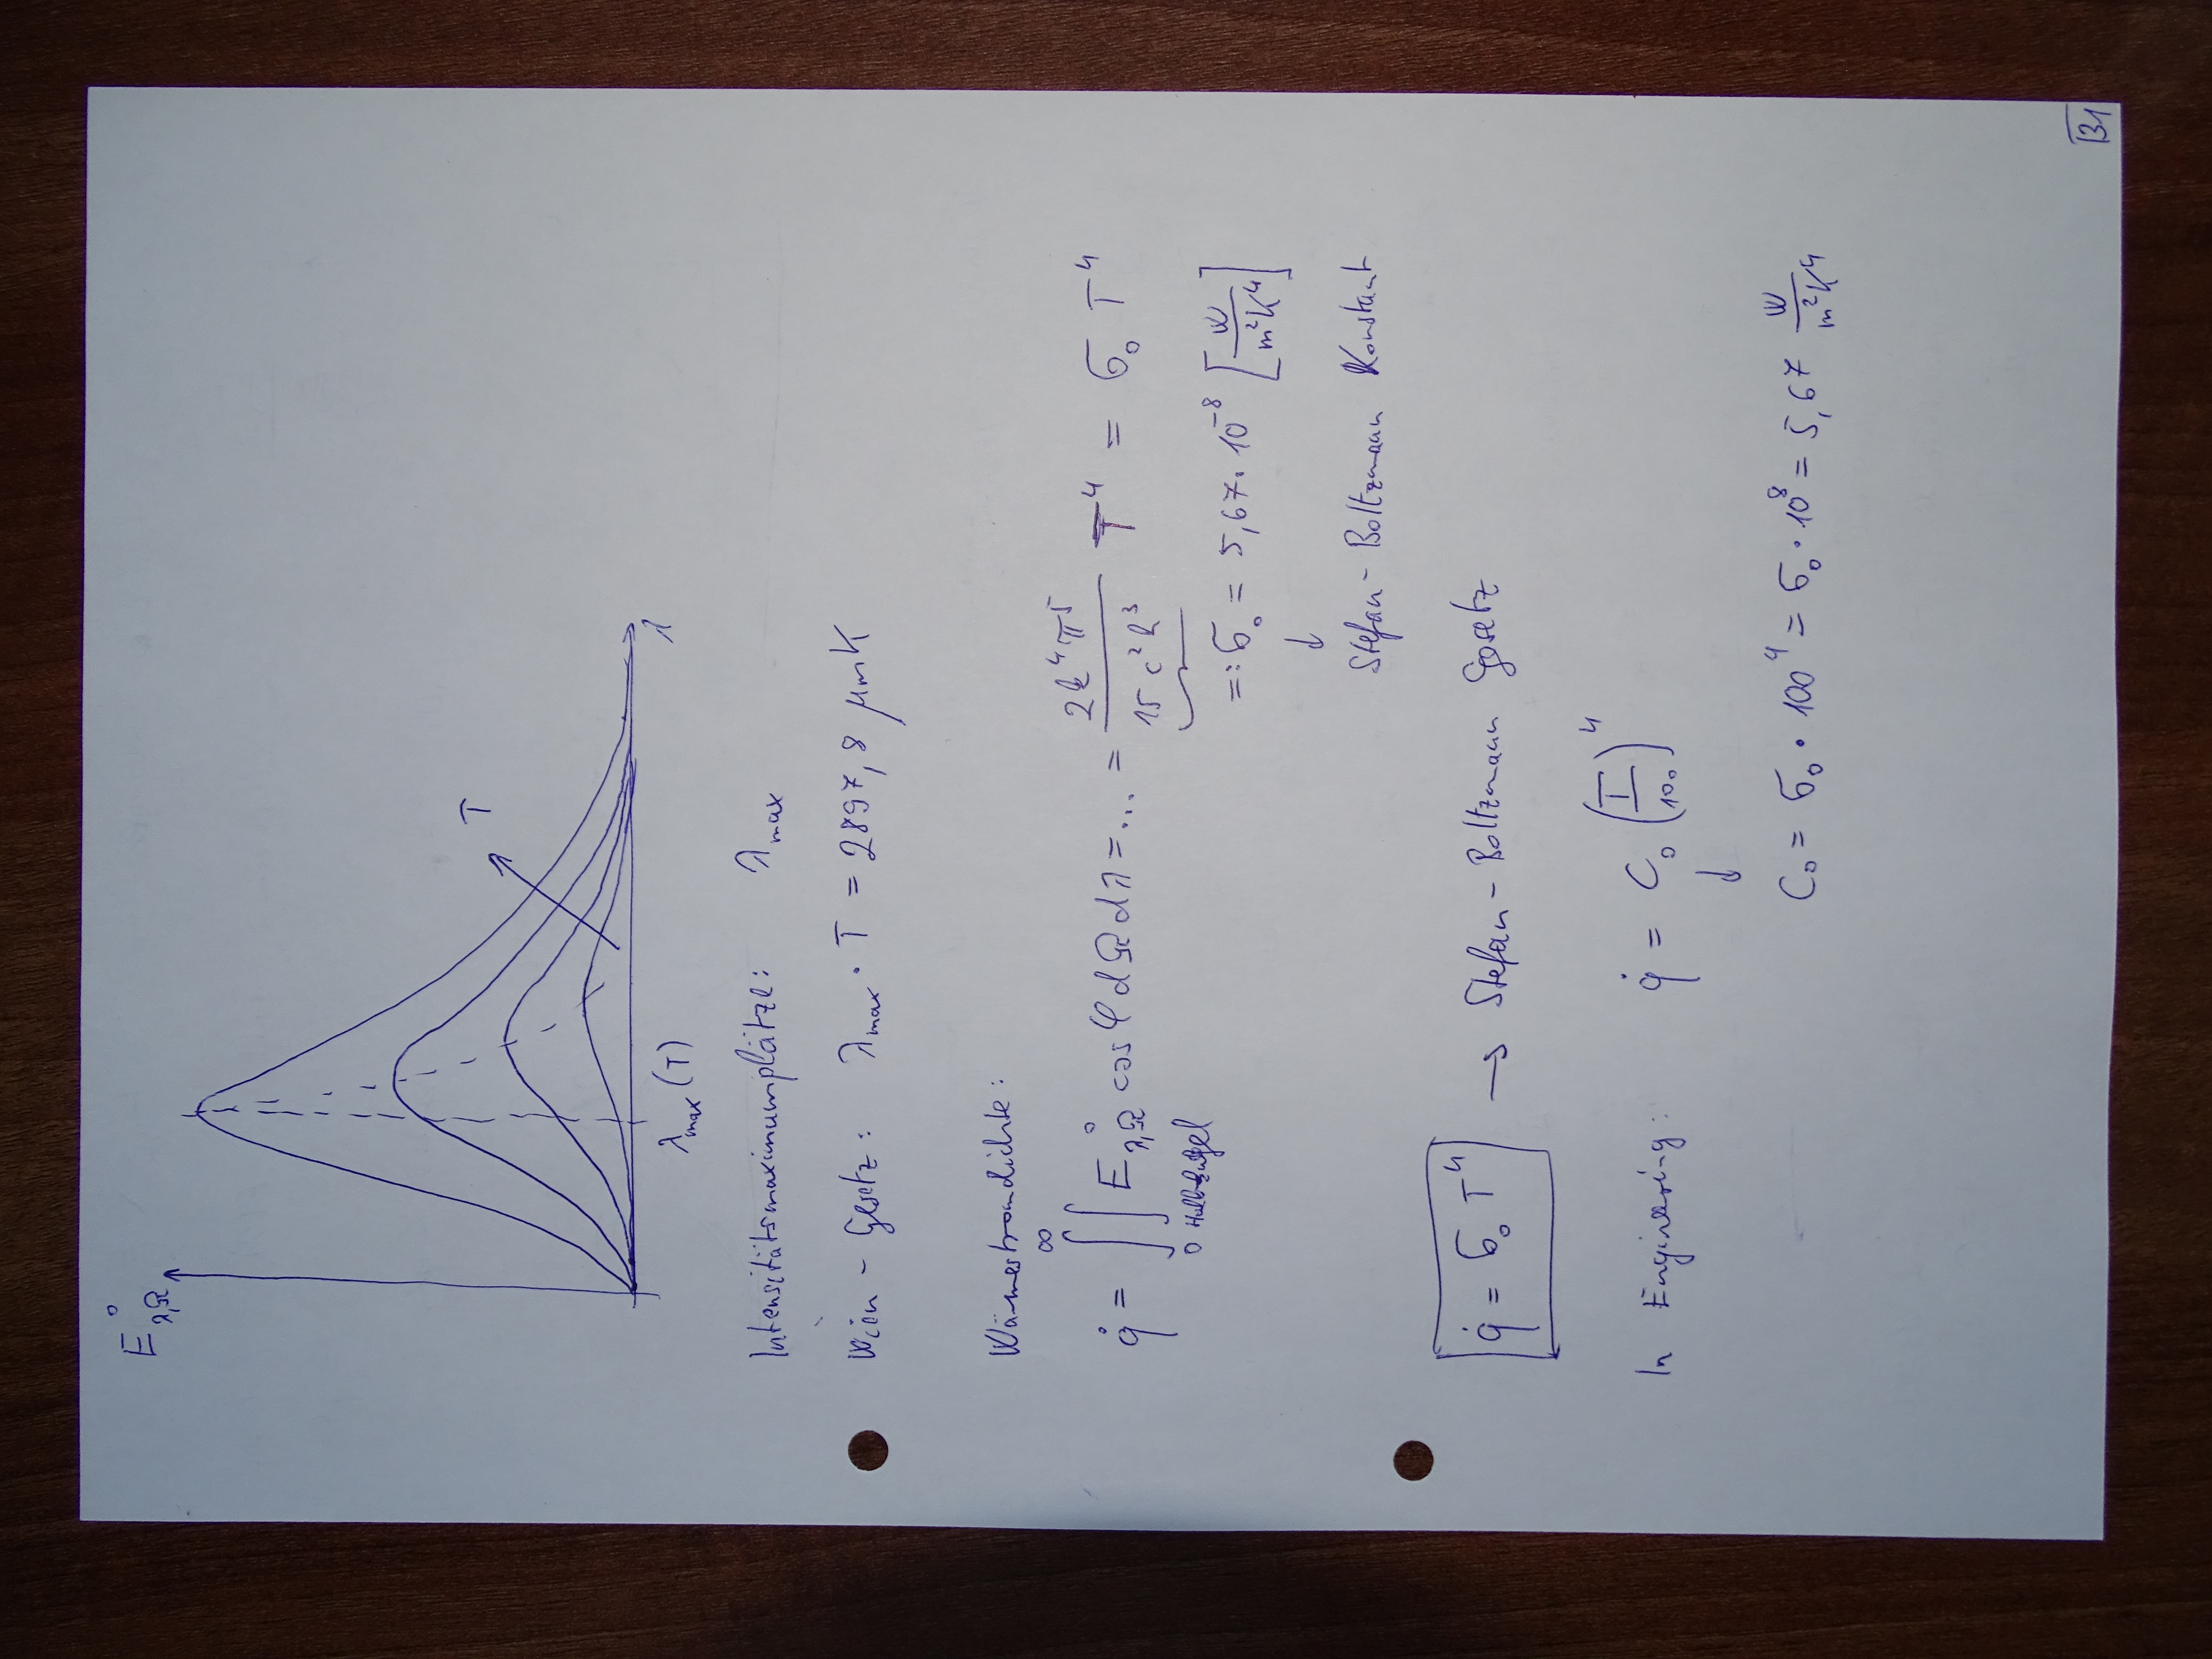 E°λ,Ω
T
λ
λmax (T)
Intensitätsmaximumplätze: λmax
Wien - Gesetz: λmax · T = 2897,8 μmK
Wärmestromdichte:
q̇ = ∫₀^∞ ∫ E°λ,Ω cos φ dΩ dλ = ... = 2k⁴π⁵ / 15 c² h³ T⁴ = σ₀ T⁴
=: σ₀ = 5,67 · 10⁻⁸ [W / m²K⁴]
↓
Stefan - Boltzmann Konstant
q̇ = σ₀ T⁴ → Stefan - Boltzmann Gesetz
In Engineering: q̇ = C₀ (T/100)⁴
↓
C₀ = σ₀ · 100⁴ = σ₀ · 10⁸ = 5,67 W / m²K⁴
131